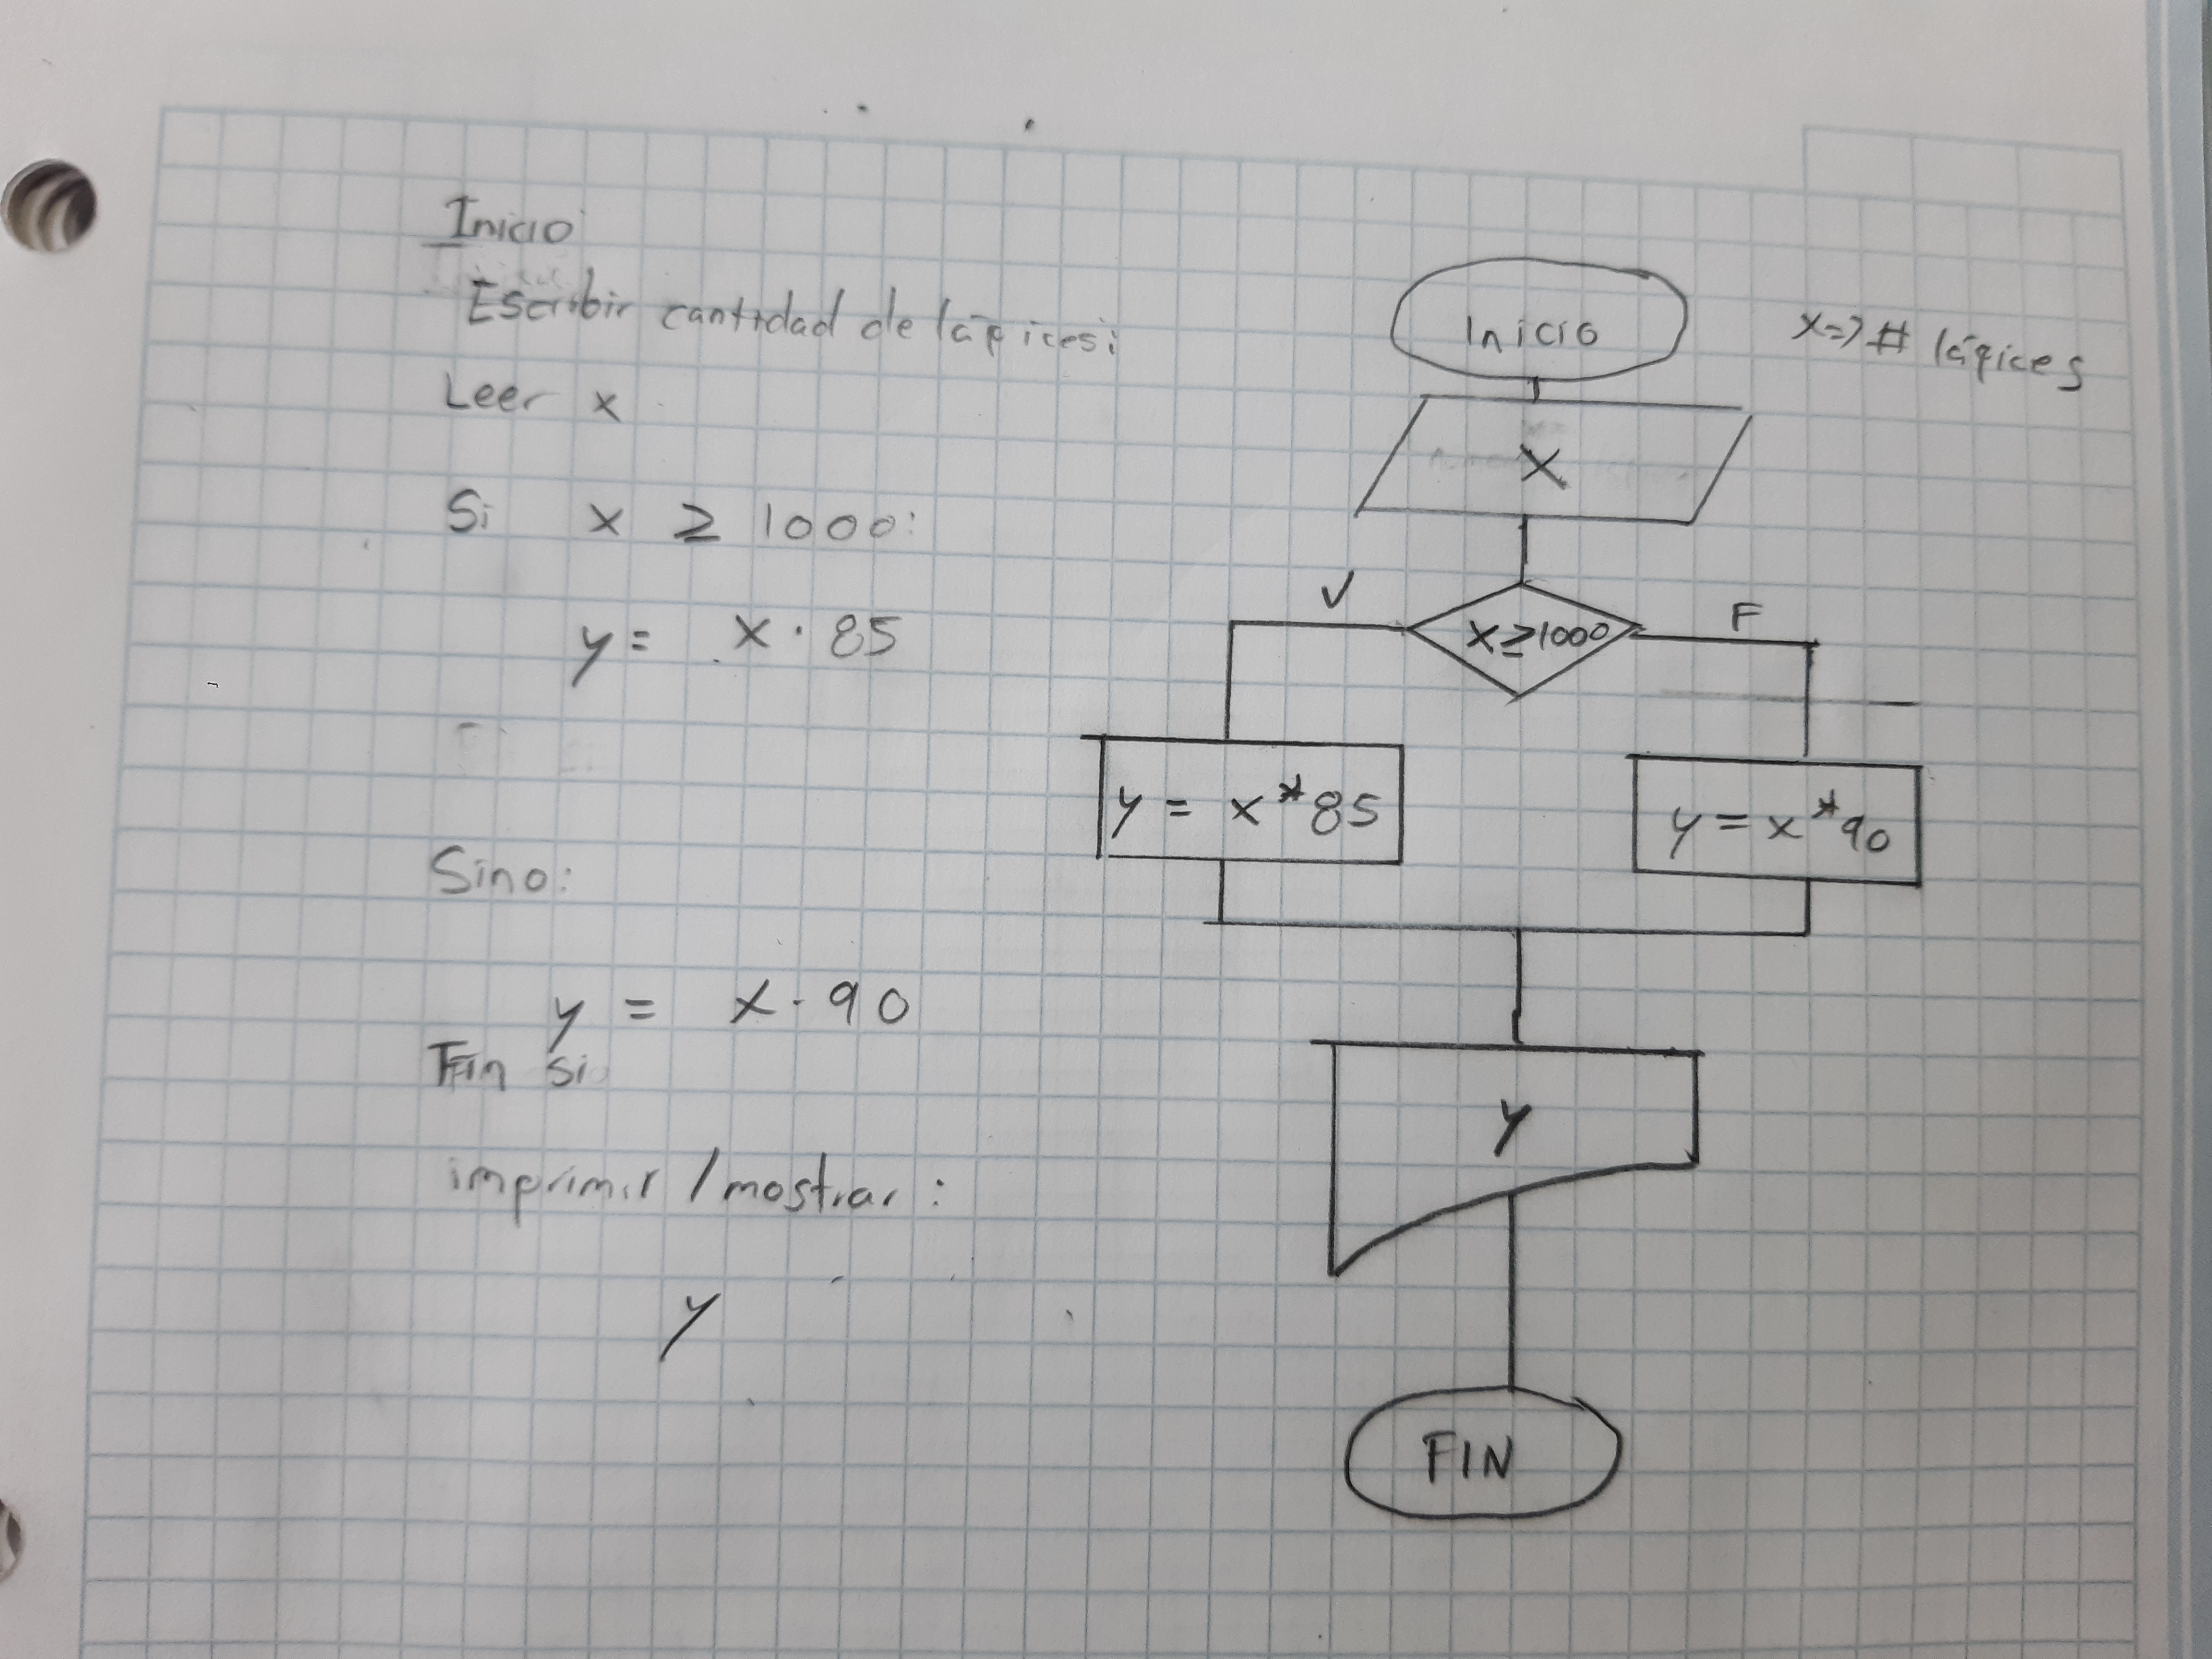 Inicio
Escribir cantidad de lápices:
Leer x
Si x ≥ 1000:
y = x · 85
Sino:
y = x · 90
Fin si
imprimir / mostrar:
y
Inicio
x => # lápices
X
V
x ≥ 1000
F
y = x * 85
y = x * 90
y
FIN